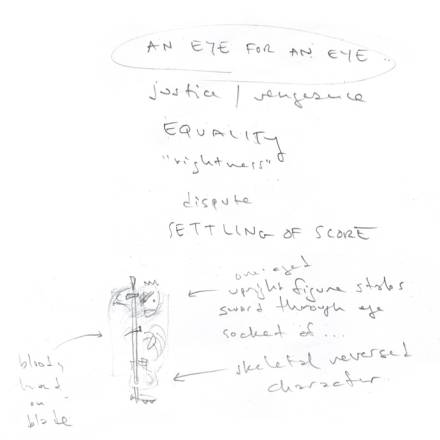 AN EYE FOR AN EYE
justice / vengeance
EQUALITY
"rightness"
dispute
SETTLING OF SCORE
one-eyed
upright figure stabs
sword through eye
socket of...
skeletal reversed
character
bloody
on
blade